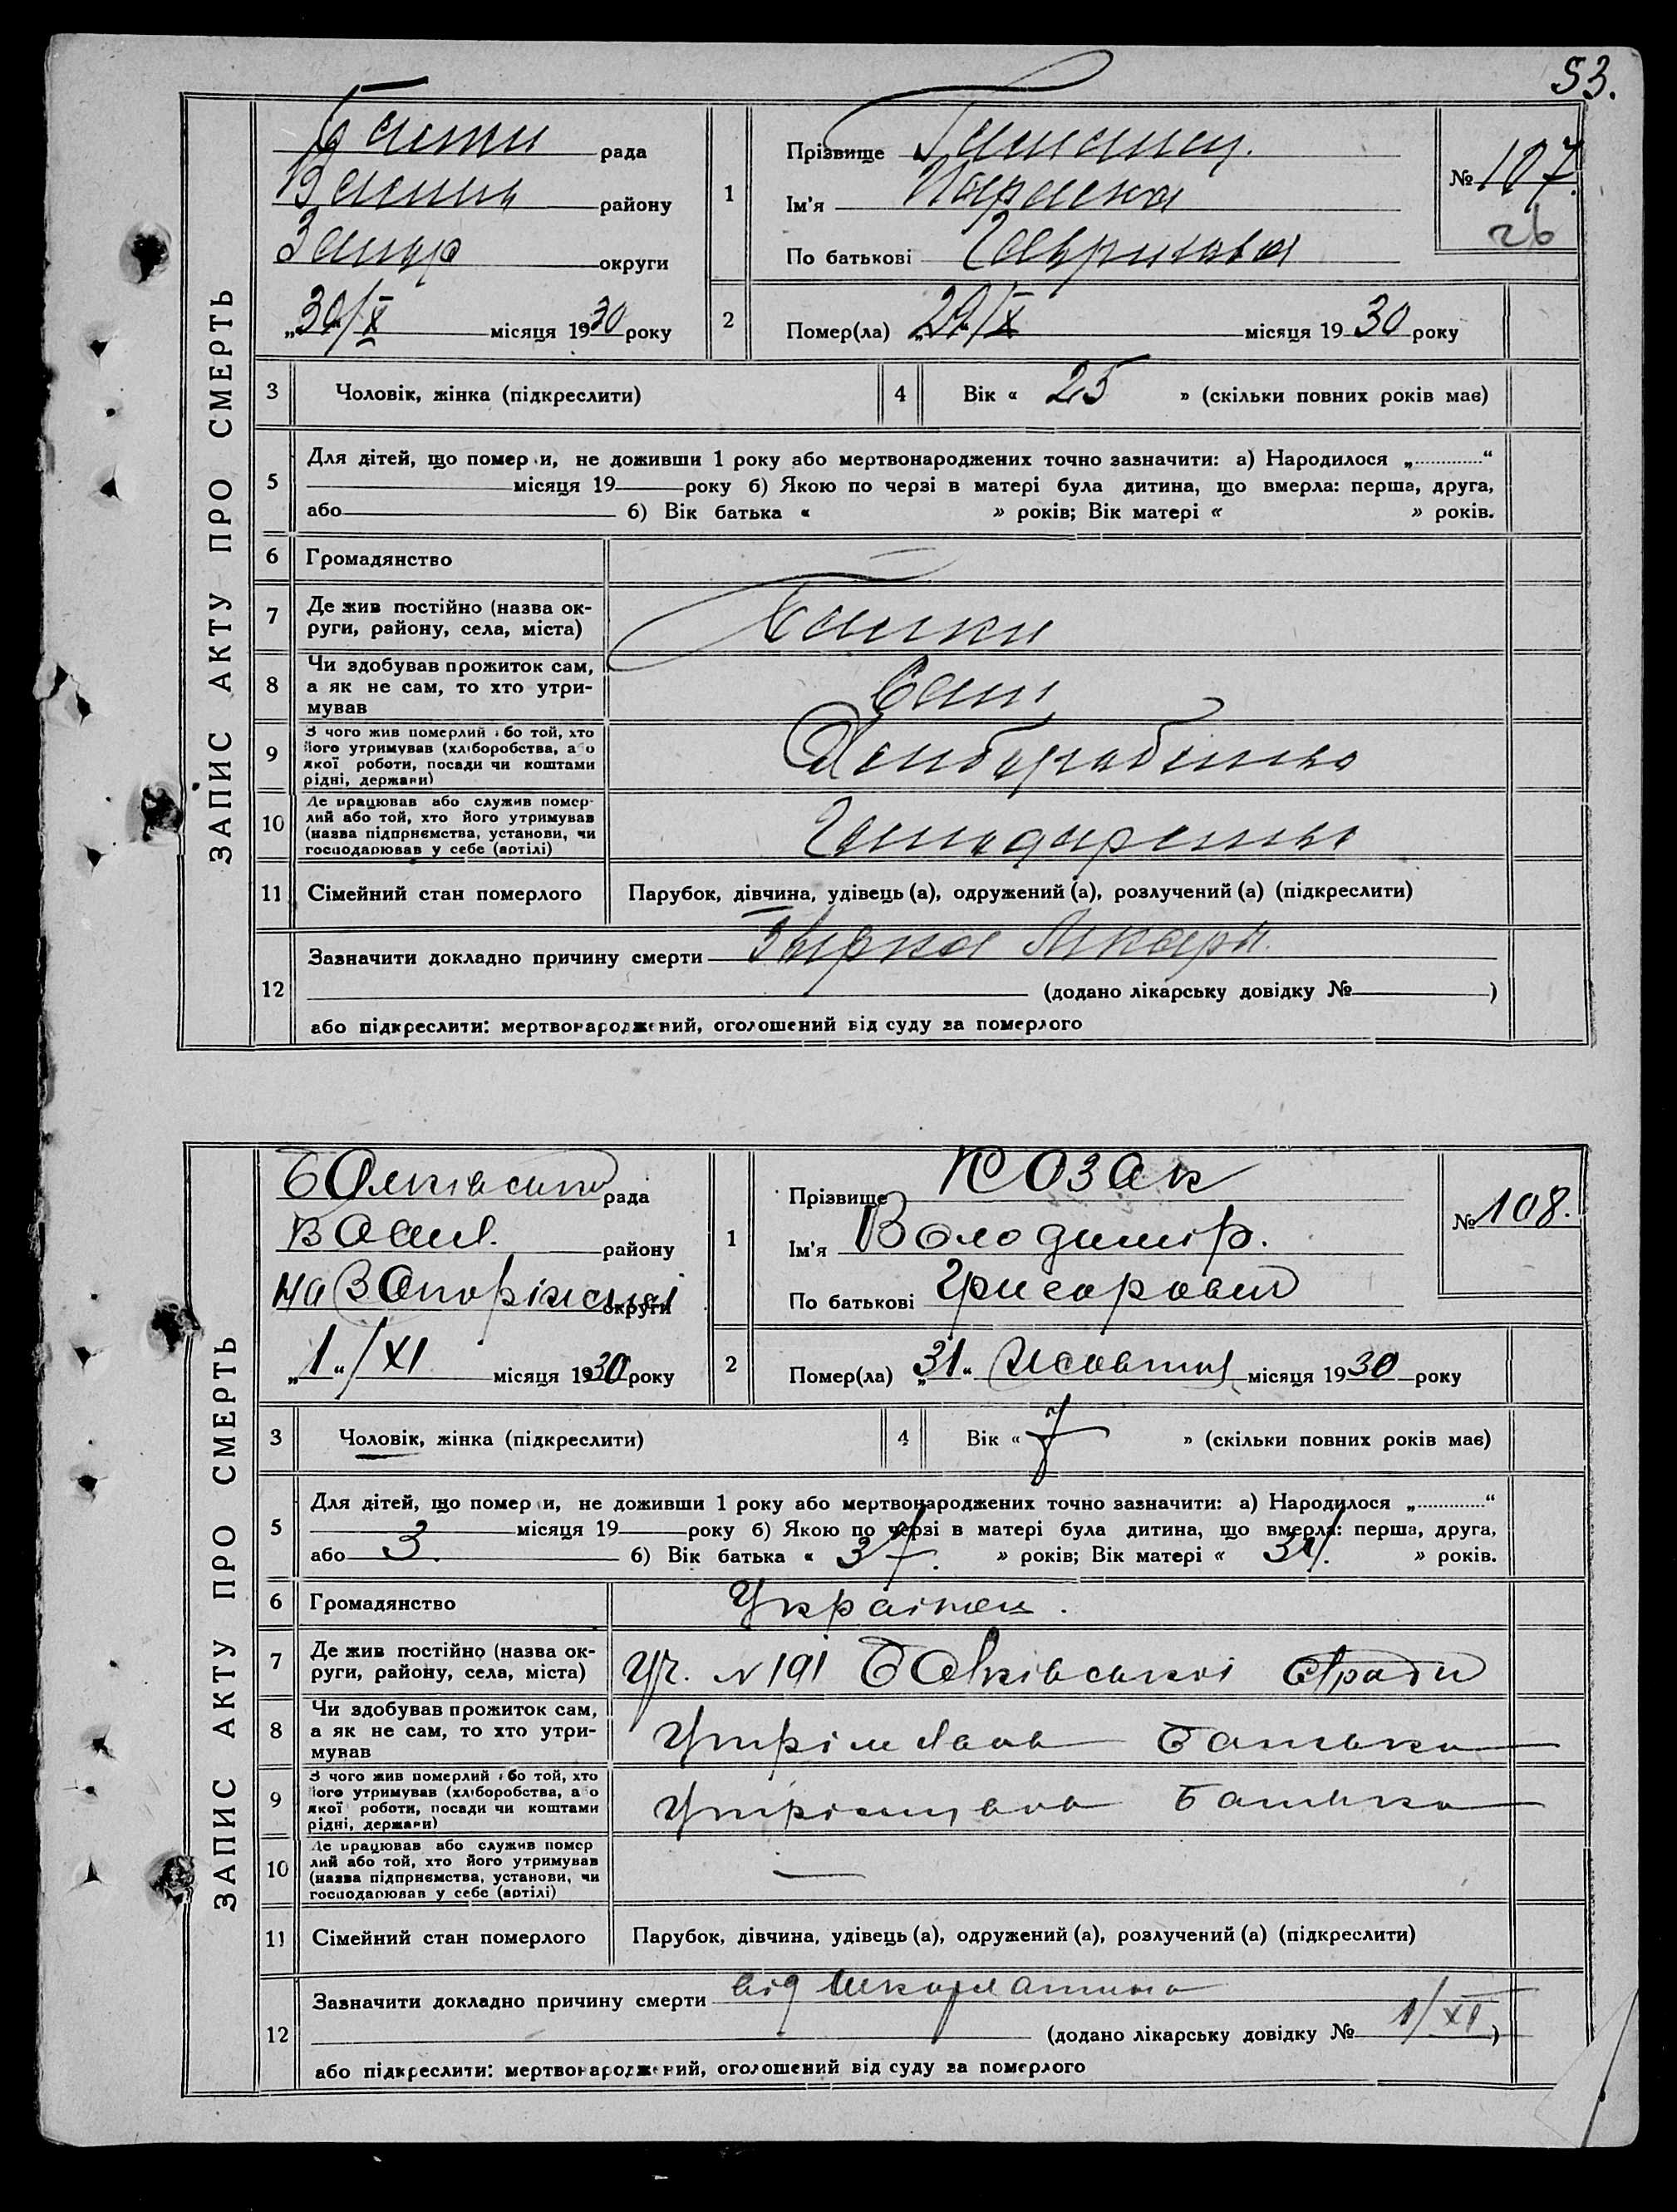 53.
ЗАПИС АКТУ ПРО СМЕРТЬ
рада
району
Запор округи
„30/X місяця 1930 року
1
Прізвище
Ім'я Параска
По батькові Гаврилова
№ 107.
26
2
Помер(ла) „29/X місяця 1930 року
3 Чоловік, жінка (підкреслити)
4 Вік « 25 » (скільки повних років має)
5
Для дітей, що помер и, не доживши 1 року або мертвонароджених точно зазначити: а) Народилося „ “
місяця 19 року б) Якою по черзі в матері була дитина, що вмерла: перша, друга,
або б) Вік батька « » років; Вік матері « » років.
6 Громадянство
7 Де жив постійно (назва ок-
руги, району, села, міста)
Балки
8 Чи здобував прожиток сам,
а як не сам, то хто утри-
мував
Сам
9 З чого жив померлий або той, хто
його утримував (хліборобства, або
якої роботи, посади чи коштами
рідні, держави)
Хліборобство
10 Де працював або служив помер-
лий або той, хто його утримував
(назва підприємства, установи, чи
господарював у себе (артілі)
11 Сімейний стан померлого
Парубок, дівчина, удівець (а), одружений (а), розлучений (а) (підкреслити)
12
Зазначити докладно причину смерті
(додано лікарську довідку № )
або підкреслити: мертвонароджений, оголошений від суду за померлого
ЗАПИС АКТУ ПРО СМЕРТЬ
Балківська рада
Васил. району
на Запоріжжі округи
„1“/XI місяця 1930 року
1
Прізвище Козак
Ім'я Володимір.
По батькові Григорович
№ 108.
2
Помер(ла) „31“ Жовтня місяця 1930 року
3 Чоловік, жінка (підкреслити)
4 Вік « 7 » (скільки повних років має)
5
Для дітей, що помер и, не доживши 1 року або мертвонароджених точно зазначити: а) Народилося „ “
місяця 19 року б) Якою по черзі в матері була дитина, що вмерла: перша, друга,
або 3. б) Вік батька « 37. » років; Вік матері « 34. » років.
6 Громадянство
Українец.
7 Де жив постійно (назва ок-
руги, району, села, міста)
№ 191 Балківської с/ради
8 Чи здобував прожиток сам,
а як не сам, то хто утри-
мував
Утрімовав Батько
9 З чого жив померлий або той, хто
його утримував (хліборобства, або
якої роботи, посади чи коштами
рідні, держави)
Утрімував Батько
10 Де працював або служив помер
лий або той, хто його утримував
(назва підприємства, установи, чи
господарював у себе (артілі)
—
11 Сімейний стан померлого
Парубок, дівчина, удівець (а), одружений (а), розлучений (а) (підкреслити)
12
Зазначити докладно причину смерти від Шкарлатини
(додано лікарську довідку № 1/XI )
або підкреслити: мертвонароджений, оголошений від суду за померлого